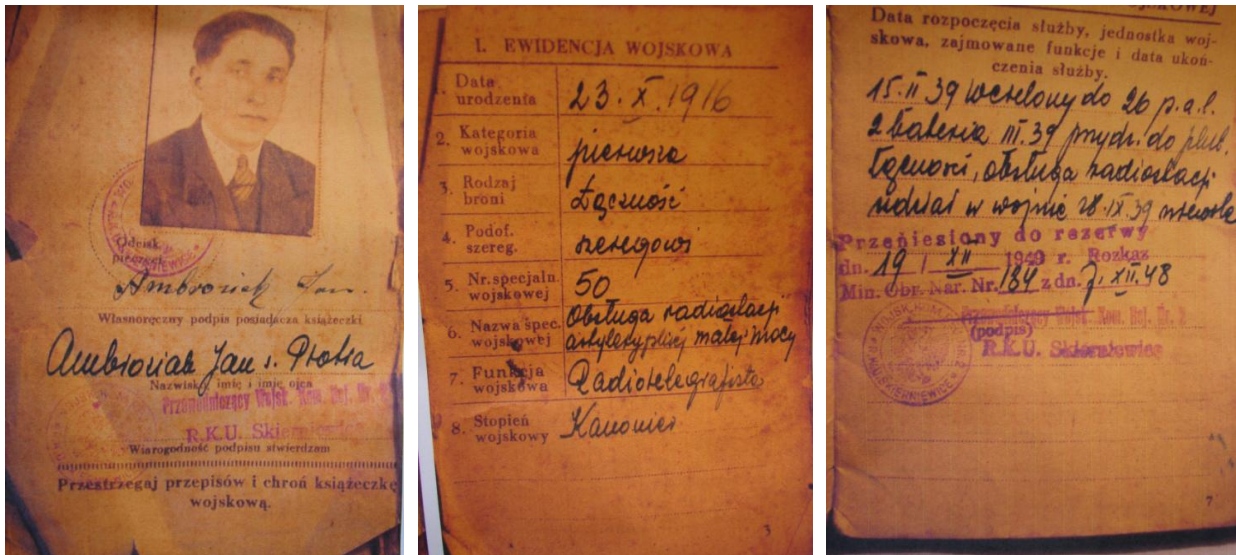 Odcisk
pieczęci
Ambroziak Jan.
Własnoręczny podpis posiadacza książeczki
Ambroziak Jan s. Piotra
Nazwisko, imię i imię ojca
Przewodniczący Wojsk. Kom. Rej. Nr. 2
R.K.U. Skierniewice
Wiarogodność podpisu stwierdzam
Przestrzegaj przepisów i chroń książeczkę
wojskową.
I. EWIDENCJA WOJSKOWA
1. Data urodzenia 23.X.1916
2. Kategoria wojskowa pierwsza
3. Rodzaj broni Łączność
4. Podof. szereg. szeregowi
5. Nr. specjaln. wojskowej 50
6. Nazwa spec. wojskowej Obsługa radiostacji
artyleryjskiej małej mocy
7. Funkcja wojskowa Radiotelegrafista
8. Stopień wojskowy Kanonier
3
Data rozpoczęcia służby, jednostka woj-
skowa, zajmowane funkcje i data ukoń-
czenia służby.
15.II 39 wcielony do 26 p.a.l.
2 bateria III.39 przydz. do plut.
Łączności, obsługa radiostacji
udział w wojnie 18.IX.39 niewola
Przeniesiony do rezerwy
dn. 19 / XII 1949 r. Rozkaz
Min. Obr. Nar. Nr. 184 z dn. 7.XII.48
Przewodniczący Wojsk. Kom. Rej. Nr. 2
(podpis)
R.K.U. Skierniewice
7